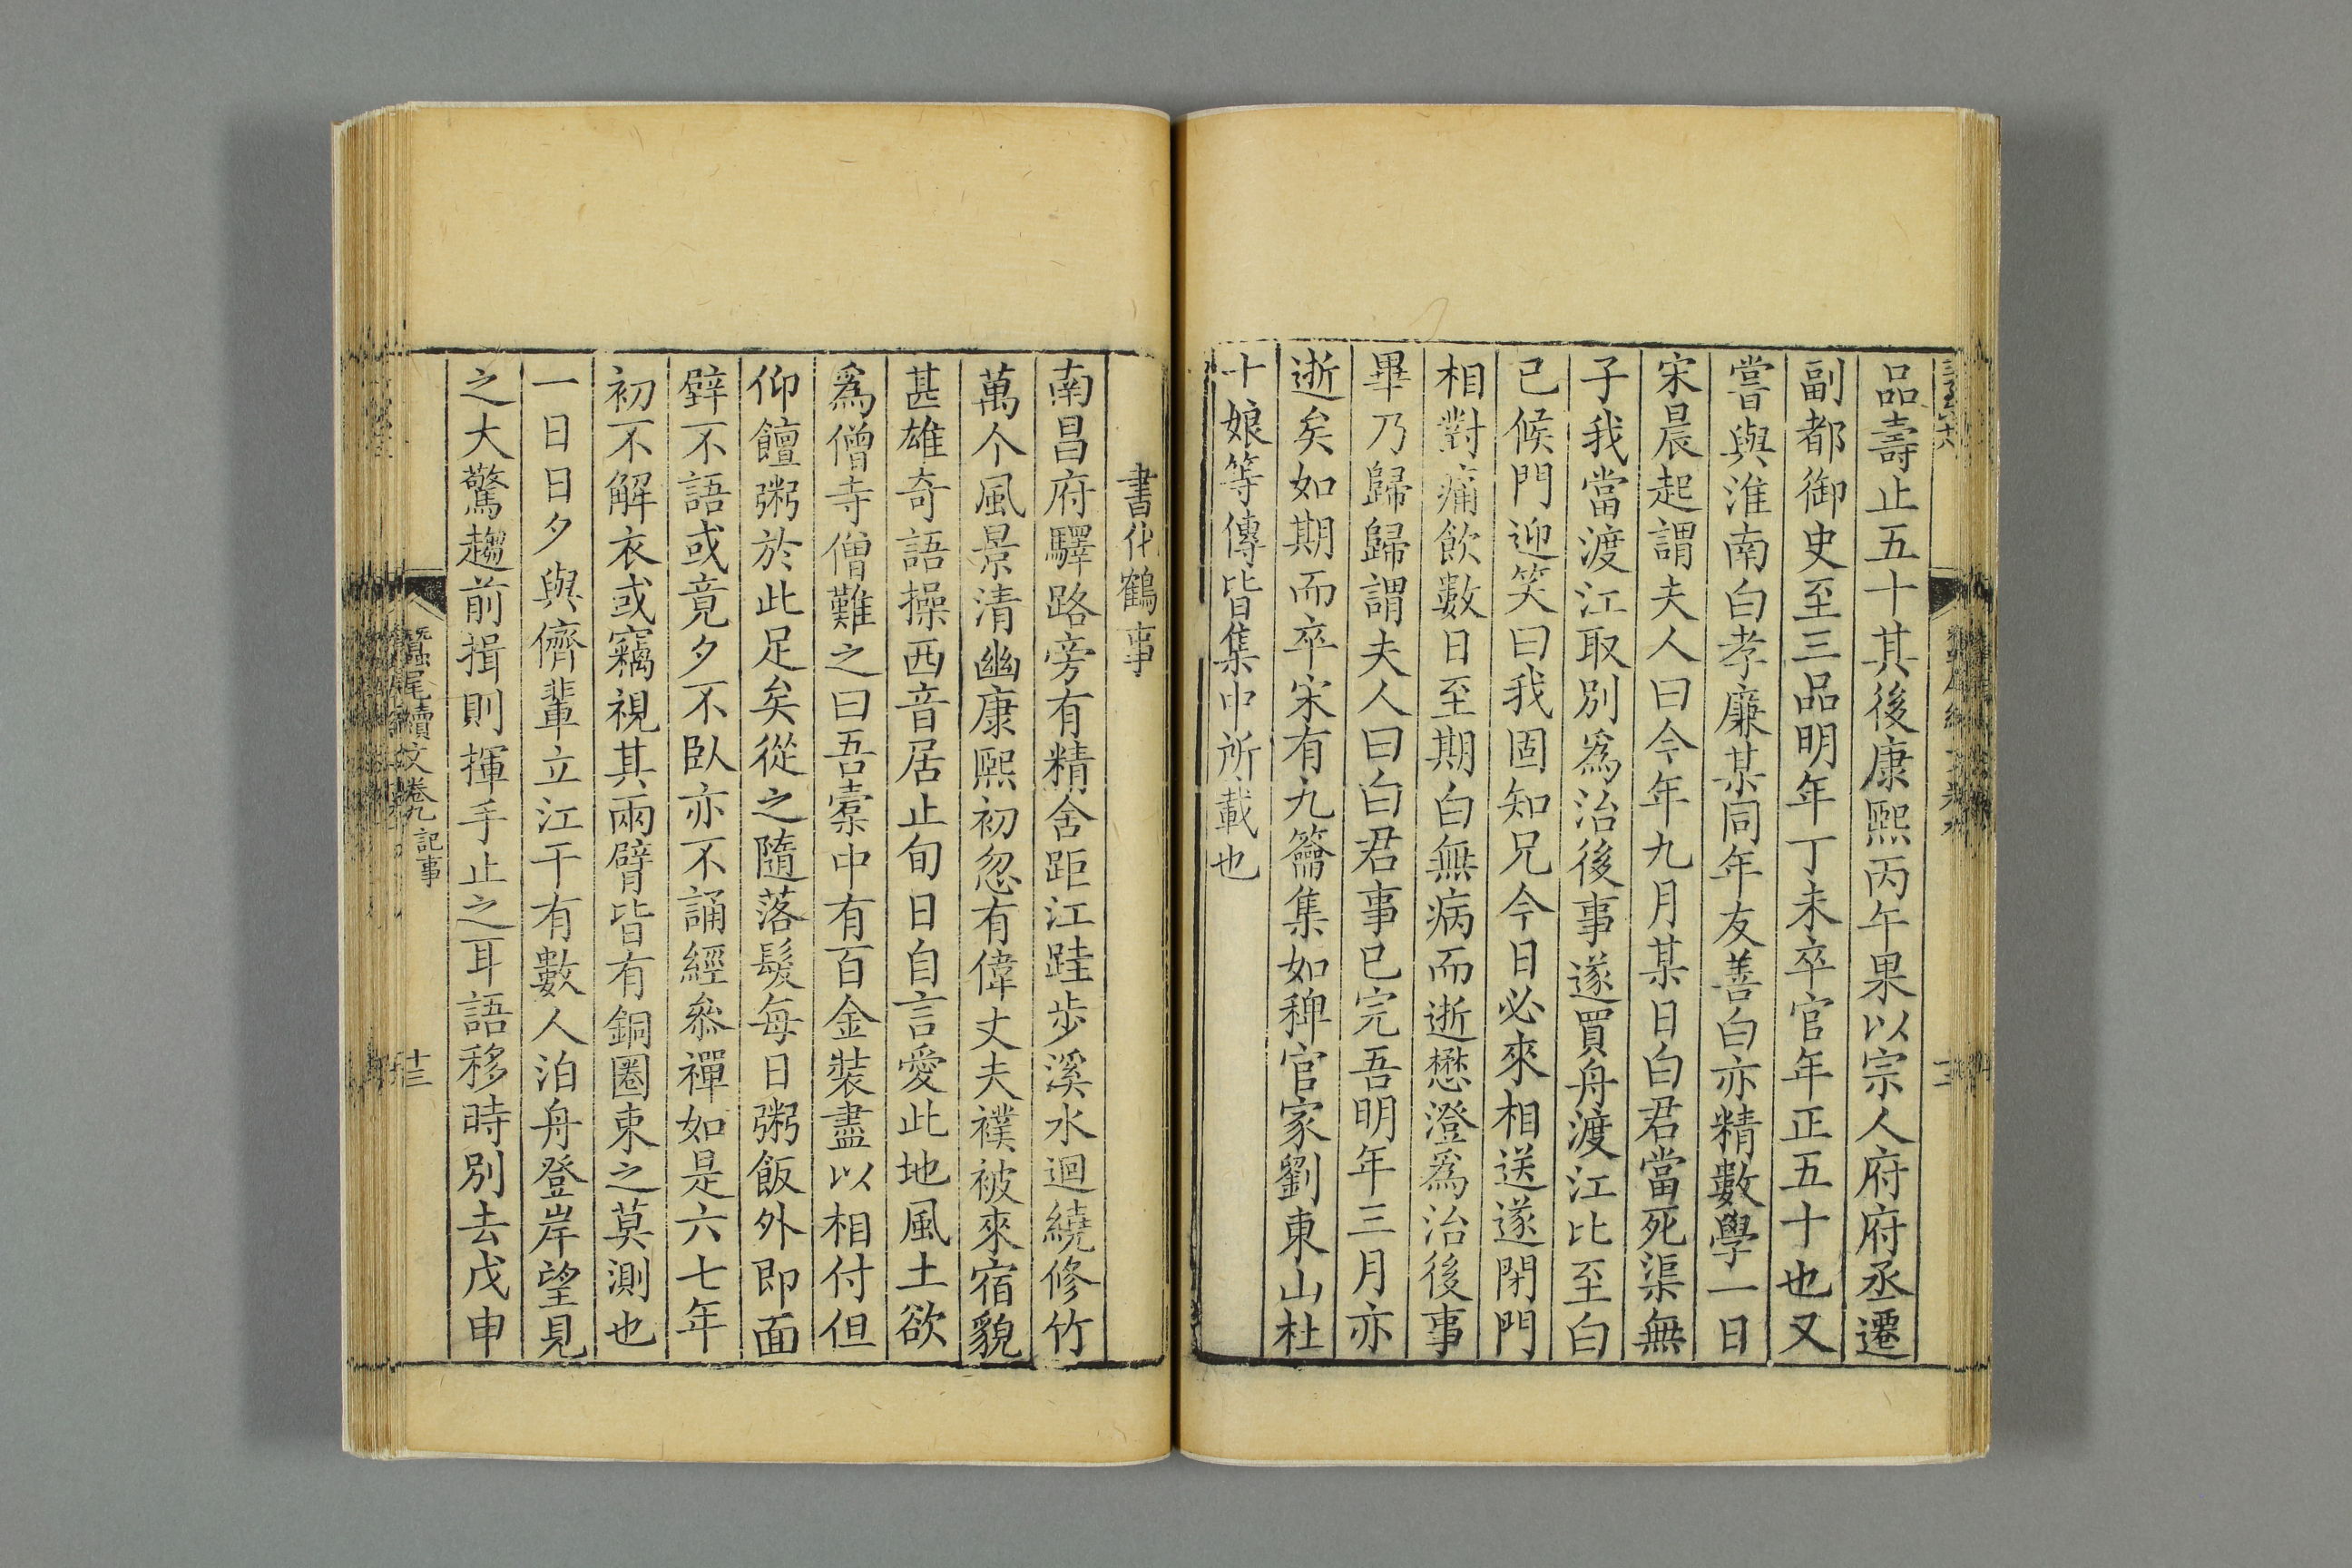 品壽止五十其後康熙丙午果以宗人府府丞遷
副都御史至三品明年丁未卒官年正五十也又
嘗與淮南白孝廉某同年友善白亦精數學一日
宋晨起謂夫人曰今年九月某日白君當死渠無
子我當渡江取別爲治後事遂買舟渡江比至白
已候門迎笑曰我固知兄今日必來相送遂閉門
相對痛飲數日至期白無病而逝懋澄爲治後事
畢乃歸歸謂夫人曰白君事已完吾明年三月亦
逝矣如期而卒宋有九籥集如稗官家劉東山杜
十娘等傳皆集中所載也
書化鶴事
南昌府驛路旁有精舍距江跬步溪水迴繞修竹
萬个風景清幽康熙初忽有偉丈夫襆被來宿貌
甚雄奇語操西音居止旬日自言愛此地風土欲
爲僧寺僧難之曰吾橐中有百金裝盡以相付但
仰饘粥於此足矣從之隨落髮每日粥飯外即面
壁不語或竟夕不臥亦不誦經叅禪如是六七年
初不解衣或竊視其兩臂皆有銅圈束之莫測也
一日日夕與儕輩立江干有數人泊舟登岸望見
之大驚趨前揖則揮手止之耳語移時別去戊申
蠶尾續文卷九 記事
十三